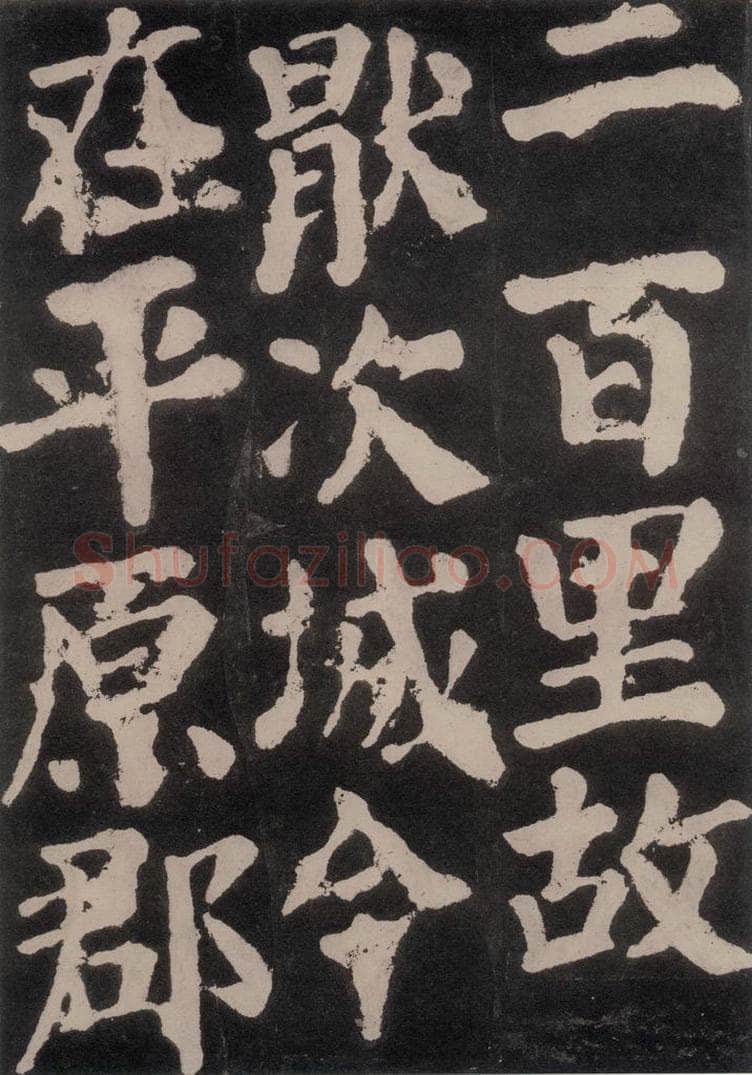 二百里故
猒次城今
在平原郡
Shufaziliao.COM